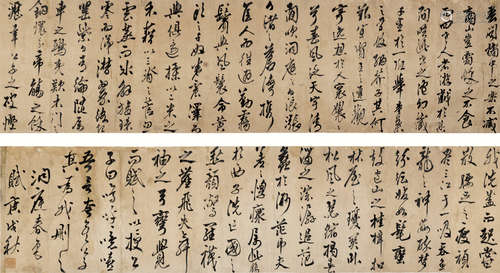 吾聞橘中之樂不減
商山豈霜餘之不食
而四老人者游戲於其
間悟此世之泡幻藏
千里於一班舉棗葉
之有餘納芥子其何
艱宜賢王之達觀
寄逸想於人寰嫋嫋
兮春風泛天宇兮清
閒吹洞庭之白浪漲
北渚之蒼灣攜
佳人而往游勤霧
鬢與風鬟命黃
頭之千奴卷震澤而
與俱還糅以二米之
禾藉以三脊之菅忽
雲烝而冰解旋珠
零而涕潸翠勺銀
罌紫絡青綸隨屬
車之鴟夷款木門之
銅鐶分帝觴之餘
瀝幸公子之破慳
我洗盞而起嘗
散腰足之痹頑
盡三江於一吸吞魚
龍之神奸醉夢
紛紜始如髦蠻
鼓包山之桂楫扣
林屋之瓊關臥
松風之瑟縮揭
春溜之淙潺追范
蠡於渺茫弔夫
差之惸鰥屬此觴
於西子洗亡國之
愁顏驚羅襪
之塵飛失舞
袖之弓彎覺
而賦之以授公
子曰烏乎噫嘻
吾言夸矣公子
其為我刪之
洞庭春色
賦 庚戌秋